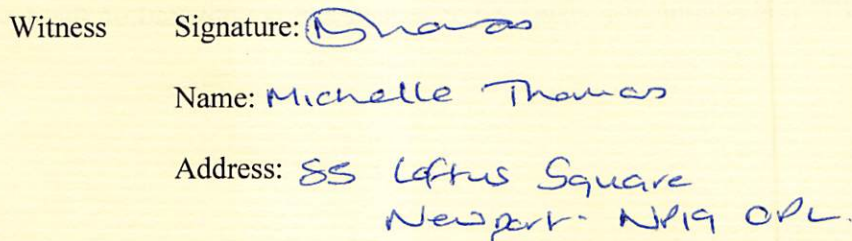 Witness Signature: MThomas
Name: Michelle Thomas
Address: 85 Loftus Square
Newport. NP19 0PL.